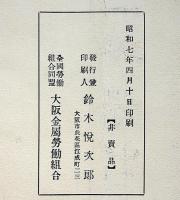 昭和七年四月十日印刷
【非賣品】
發行兼
印刷人
鈴木悅次郎
大阪市此花區江成町二三
全國勞働
組合同盟
大阪金属勞働組合